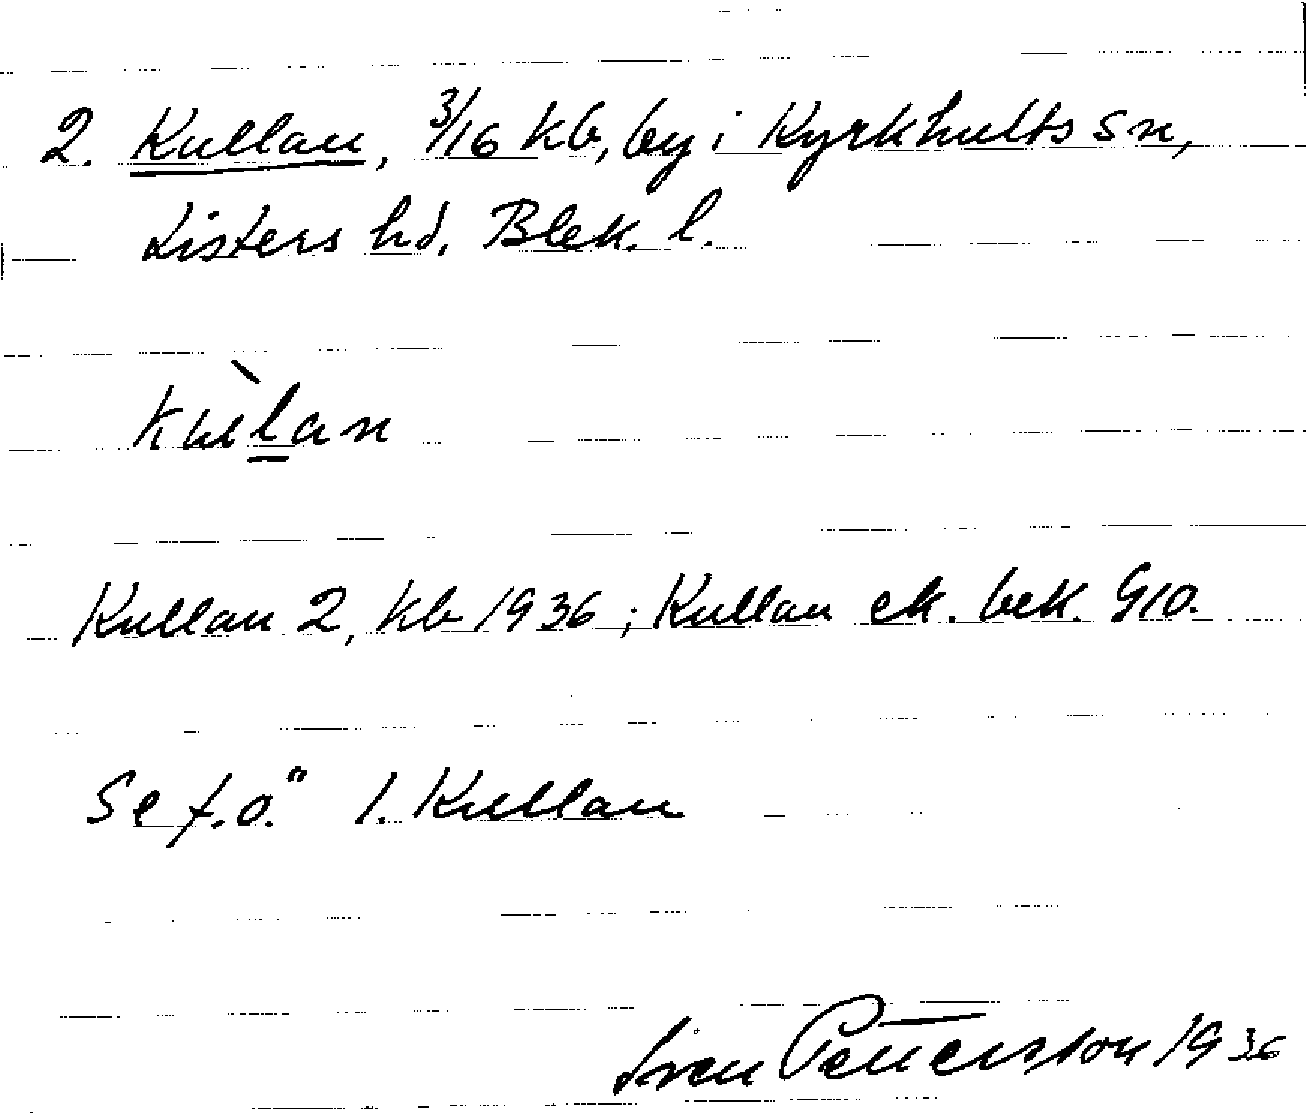 2. Kullan, 3/16 kb, by i Kyrkhults sn,
Listers hd. Blek. l.
kùlan
Kullan 2, kb 1936; Kullan ek. bek. G10.
Se f.ö. 1. Kullan
Sven Pettersson 1936